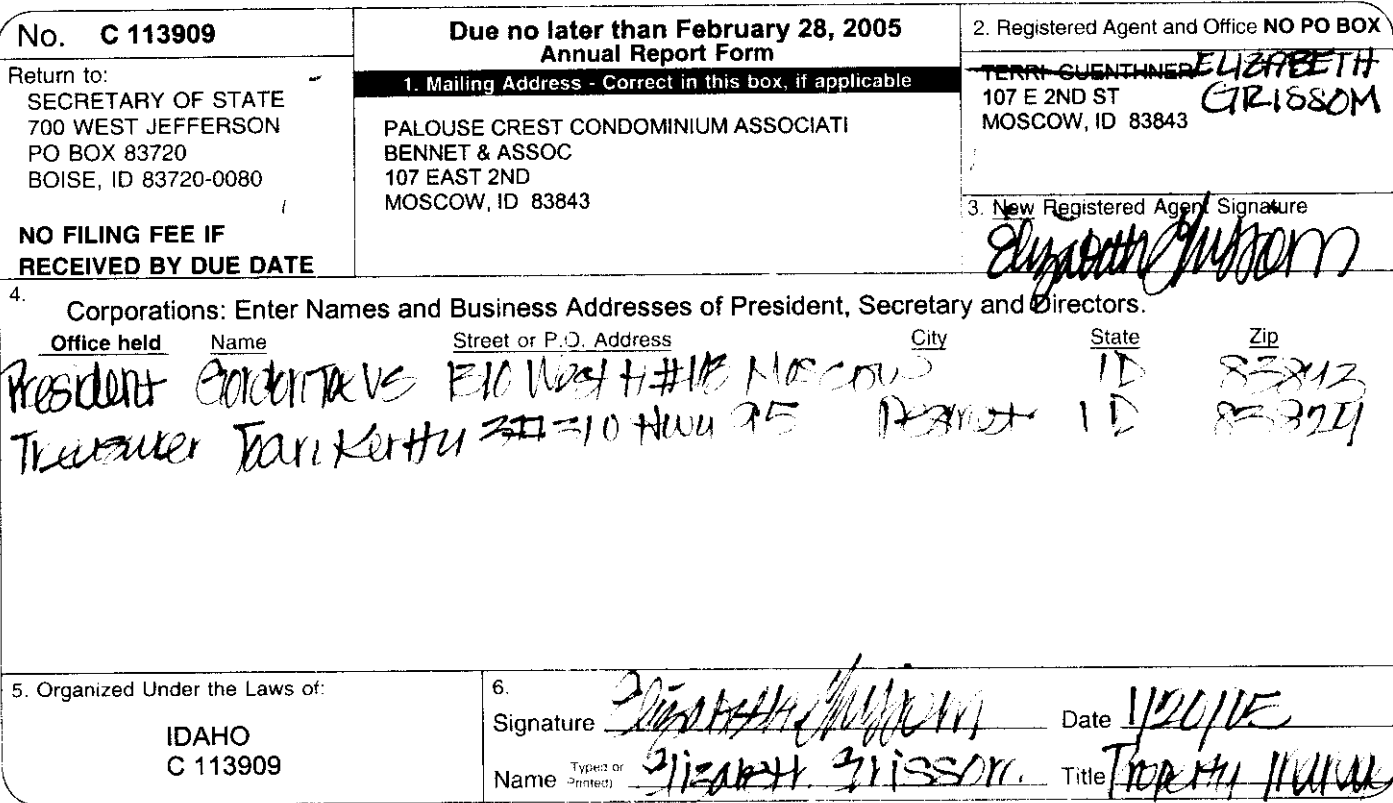 No. C 113909
Return to:
SECRETARY OF STATE
700 WEST JEFFERSON
PO BOX 83720
BOISE, ID 83720-0080
NO FILING FEE IF
RECEIVED BY DUE DATE
Due no later than February 28, 2005
Annual Report Form
1. Mailing Address - Correct in this box, if applicable
PALOUSE CREST CONDOMINIUM ASSOCIATI
BENNET & ASSOC
107 EAST 2ND
MOSCOW, ID 83843
2. Registered Agent and Office NO PO BOX
TERRI GUENTHNER ELIZABETH
GRISSOM
107 E 2ND ST
MOSCOW, ID 83843
3. New Registered Agent Signature
Elizabeth Grissom
4.
Corporations: Enter Names and Business Addresses of President, Secretary and Directors.
Office held Name Street or P.O. Address City State Zip
President Moscow ID 83843
Treasurer Hwy 95 ID
5. Organized Under the Laws of:
IDAHO
C 113909
6.
Signature Elizabeth Grissom Date
Name (Typed or Printed) Elizabeth Grissom Title Property